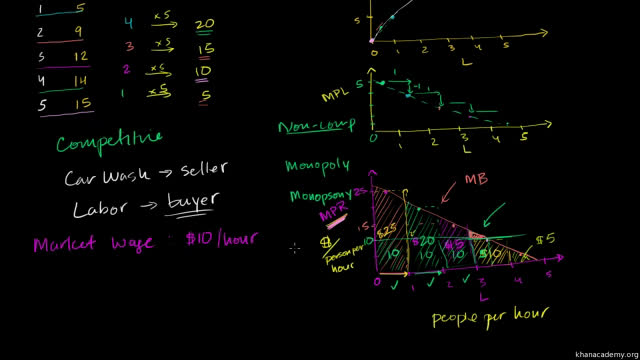 1 5
2 9 4 x5 20
3 12 3 x5 15
4 14 2 x5 10
5 15 1 x5 5
5
0 1 2 3 4 5
L
MPL
5
1
-1
0 1 2 3 4 5
L
Competitive
Car Wash → seller
Labor → buyer
Market wage $10/hour
Non-comp
Monopoly
Monopsony
MPR
$/person per hour
MB
25
15
10
$25 $20 $15 $10 $5
10 10 10
0 1 2 3 4 5
L
people per hour
khanacademy.org